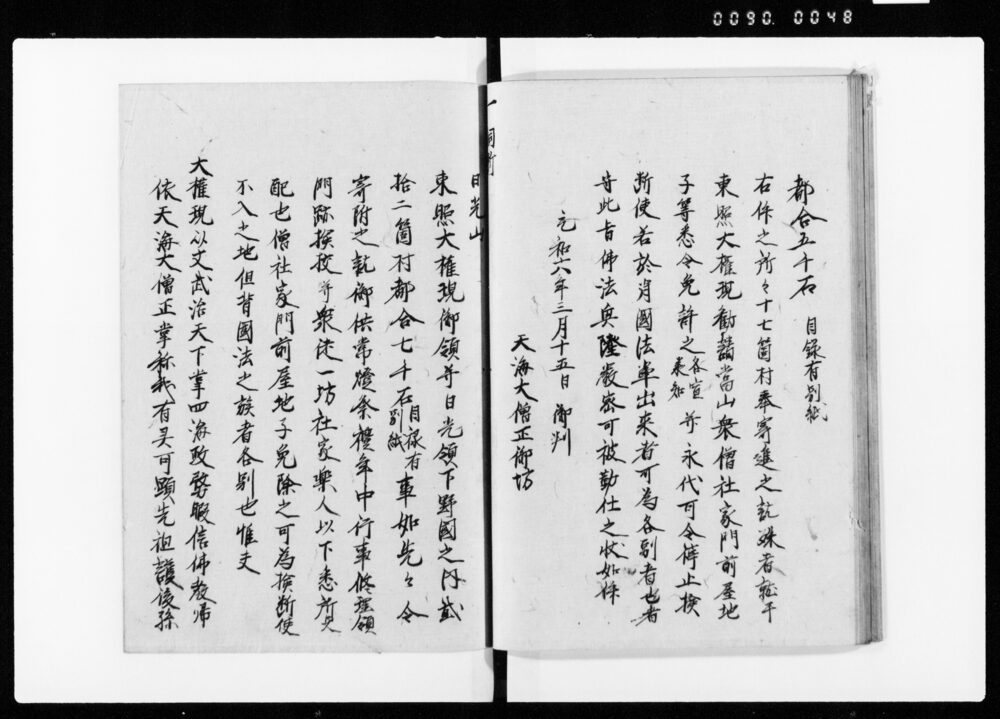 0090. 0048
都合五千石 目録有別紙
右件之所々十七箇村奉寄進之訖殊者
東照大権現勧請當山衆僧社家門前屋地
子等悉令免許之 并永代可令停止検
断使若於背國法輩出来者可為各別者也者
守此旨佛法興隆厳密可被勤仕之状如件
元和六年三月十五日 御判
天海大僧正御坊
一 同所
日光山
東照大権現御領并日光領下野國之内貳
拾二箇村都合七千石目録有別紙事如先々令
寄附之訖御供常燈祭禮年中行事修理領
門跡挨挍并衆徒一坊社家樂人以下悉所見
配也僧社家門前屋地子免除之可為検断使
不入之地但背國法之族者各別也惟夫
大權現以文武治天下掌四海政務暇信佛教帰
依天海大僧正掌称我有美可顕先祖護後孫